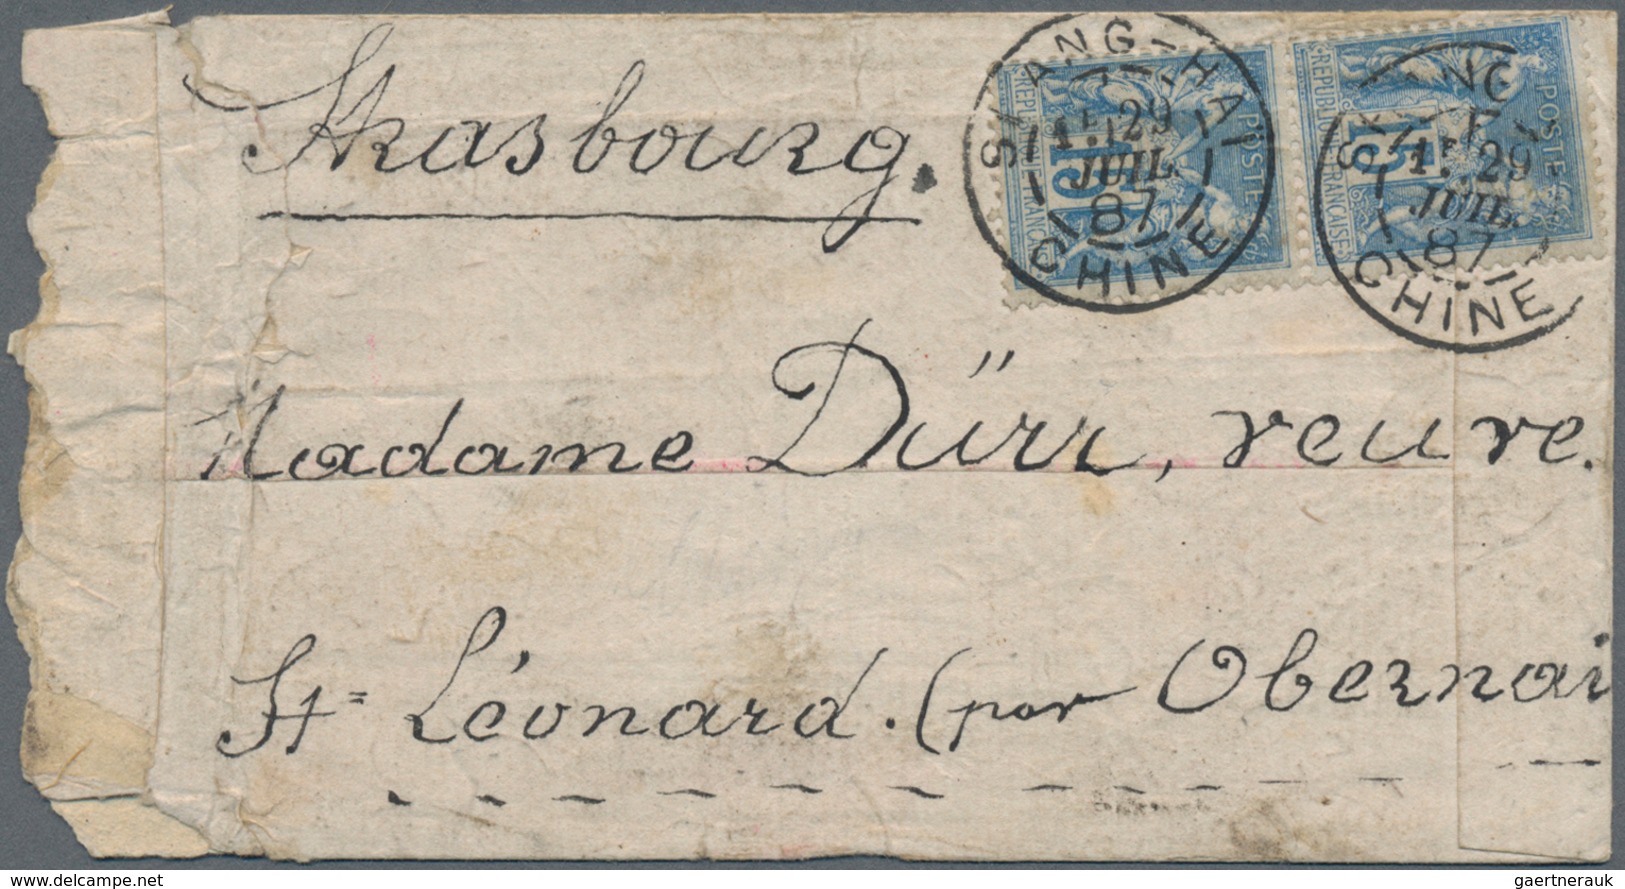 Strasbourg.
SHANG-HAÏ
1E 29
JUIL.
87
CHINE
REPUBLIQUE FRANÇAISE
POSTE
15
SHANG
1E 29
JUIL.
87
CHINE
REPUBLIQUE FRANÇAISE
POSTE
15
Madame Dürr, veuve.
St= Léonard. (par Obernai
www.delcampe.net
gaertnerauk